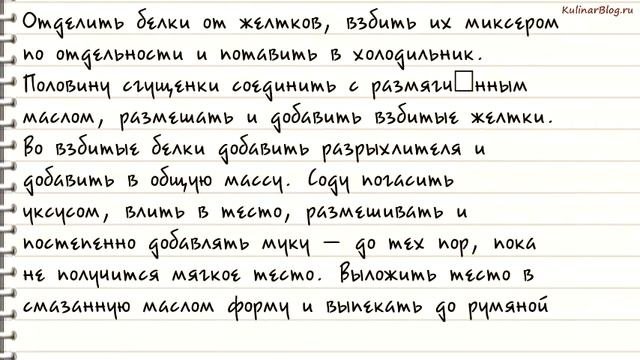 KulinarBlog.ru
Отделить белки от желтков, взбить их миксером
по отдельности и потавить в холодильник.
Половину сгущенки соединить с размяги□нным
маслом, размешать и добавить взбитые желтки.
Во взбитые белки добавить разрыхлителя и
добавить в общую массу. Соду погасить
уксусом, влить в тесто, размешивать и
постепенно добавлять муку — до тех пор, пока
не получится мягкое тесто. Выложить тесто в
смазанную маслом форму и выпекать до румяной